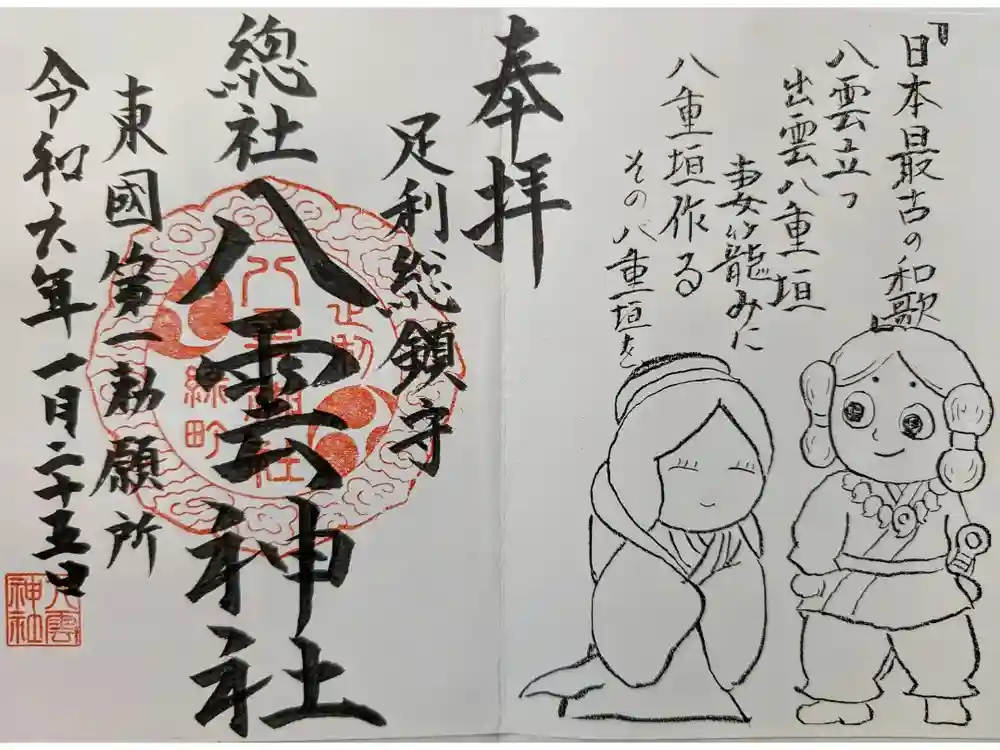 『日本最古の和歌』
八雲立つ
出雲八重垣
妻籠みに
八重垣作る
その八重垣を
奉拝
足利総鎮守
總社
八雲神社
東國第一勅願所
令和六年一月二十五日
八雲
神社